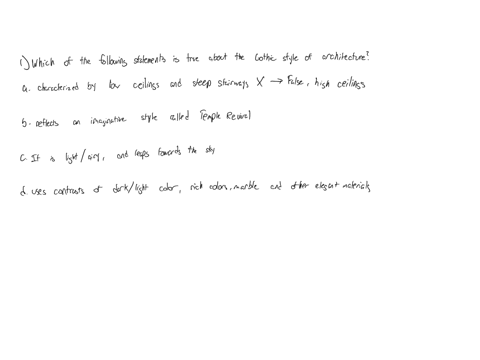 1) Which of the following statements is true about the Gothic style of architecture?
a. characterized by low ceilings and steep stairways X → False, high ceilings
b. reflects an imaginative style called Temple Revival
c. It is light/airy, and leaps towards the sky
d. uses contrasts of dark/light color, rich colors, marble and other elegant materials